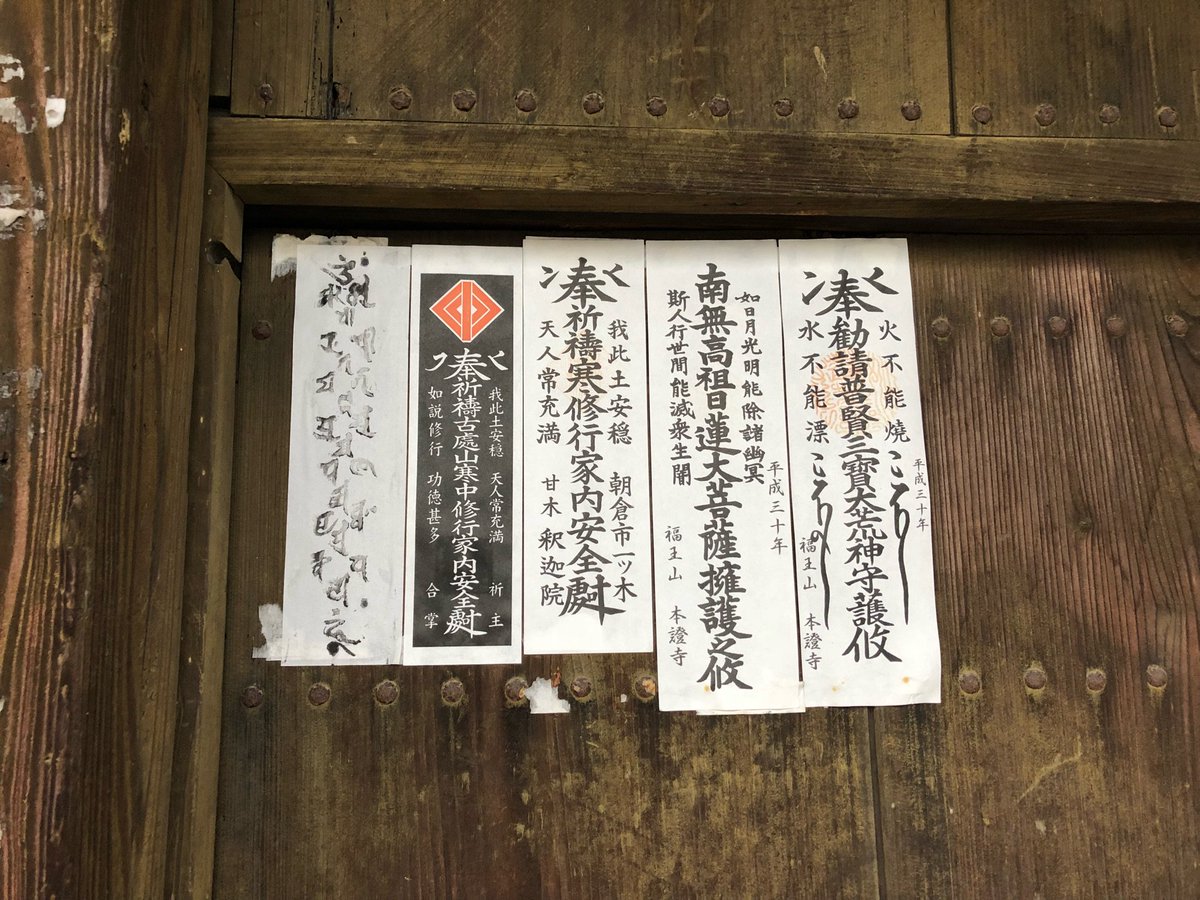 火不能燒
奉勸請普賢三寶大荒神守護攸
水不能漂
平成三十年
福王山 本證寺
如日月光明能除諸幽冥
南無高祖日蓮大菩薩擁護之攸
斯人行世間能滅衆生闇
平成三十年
福王山 本證寺
我此土安穏 朝倉市一ッ木
奉祈禱寒修行家内安全
天人常充満 甘木 釈迦院
我此土安穏 天人常充満 祈主
奉祈禱古處山寒中修行家内安全
如説修行 功徳甚多 合掌